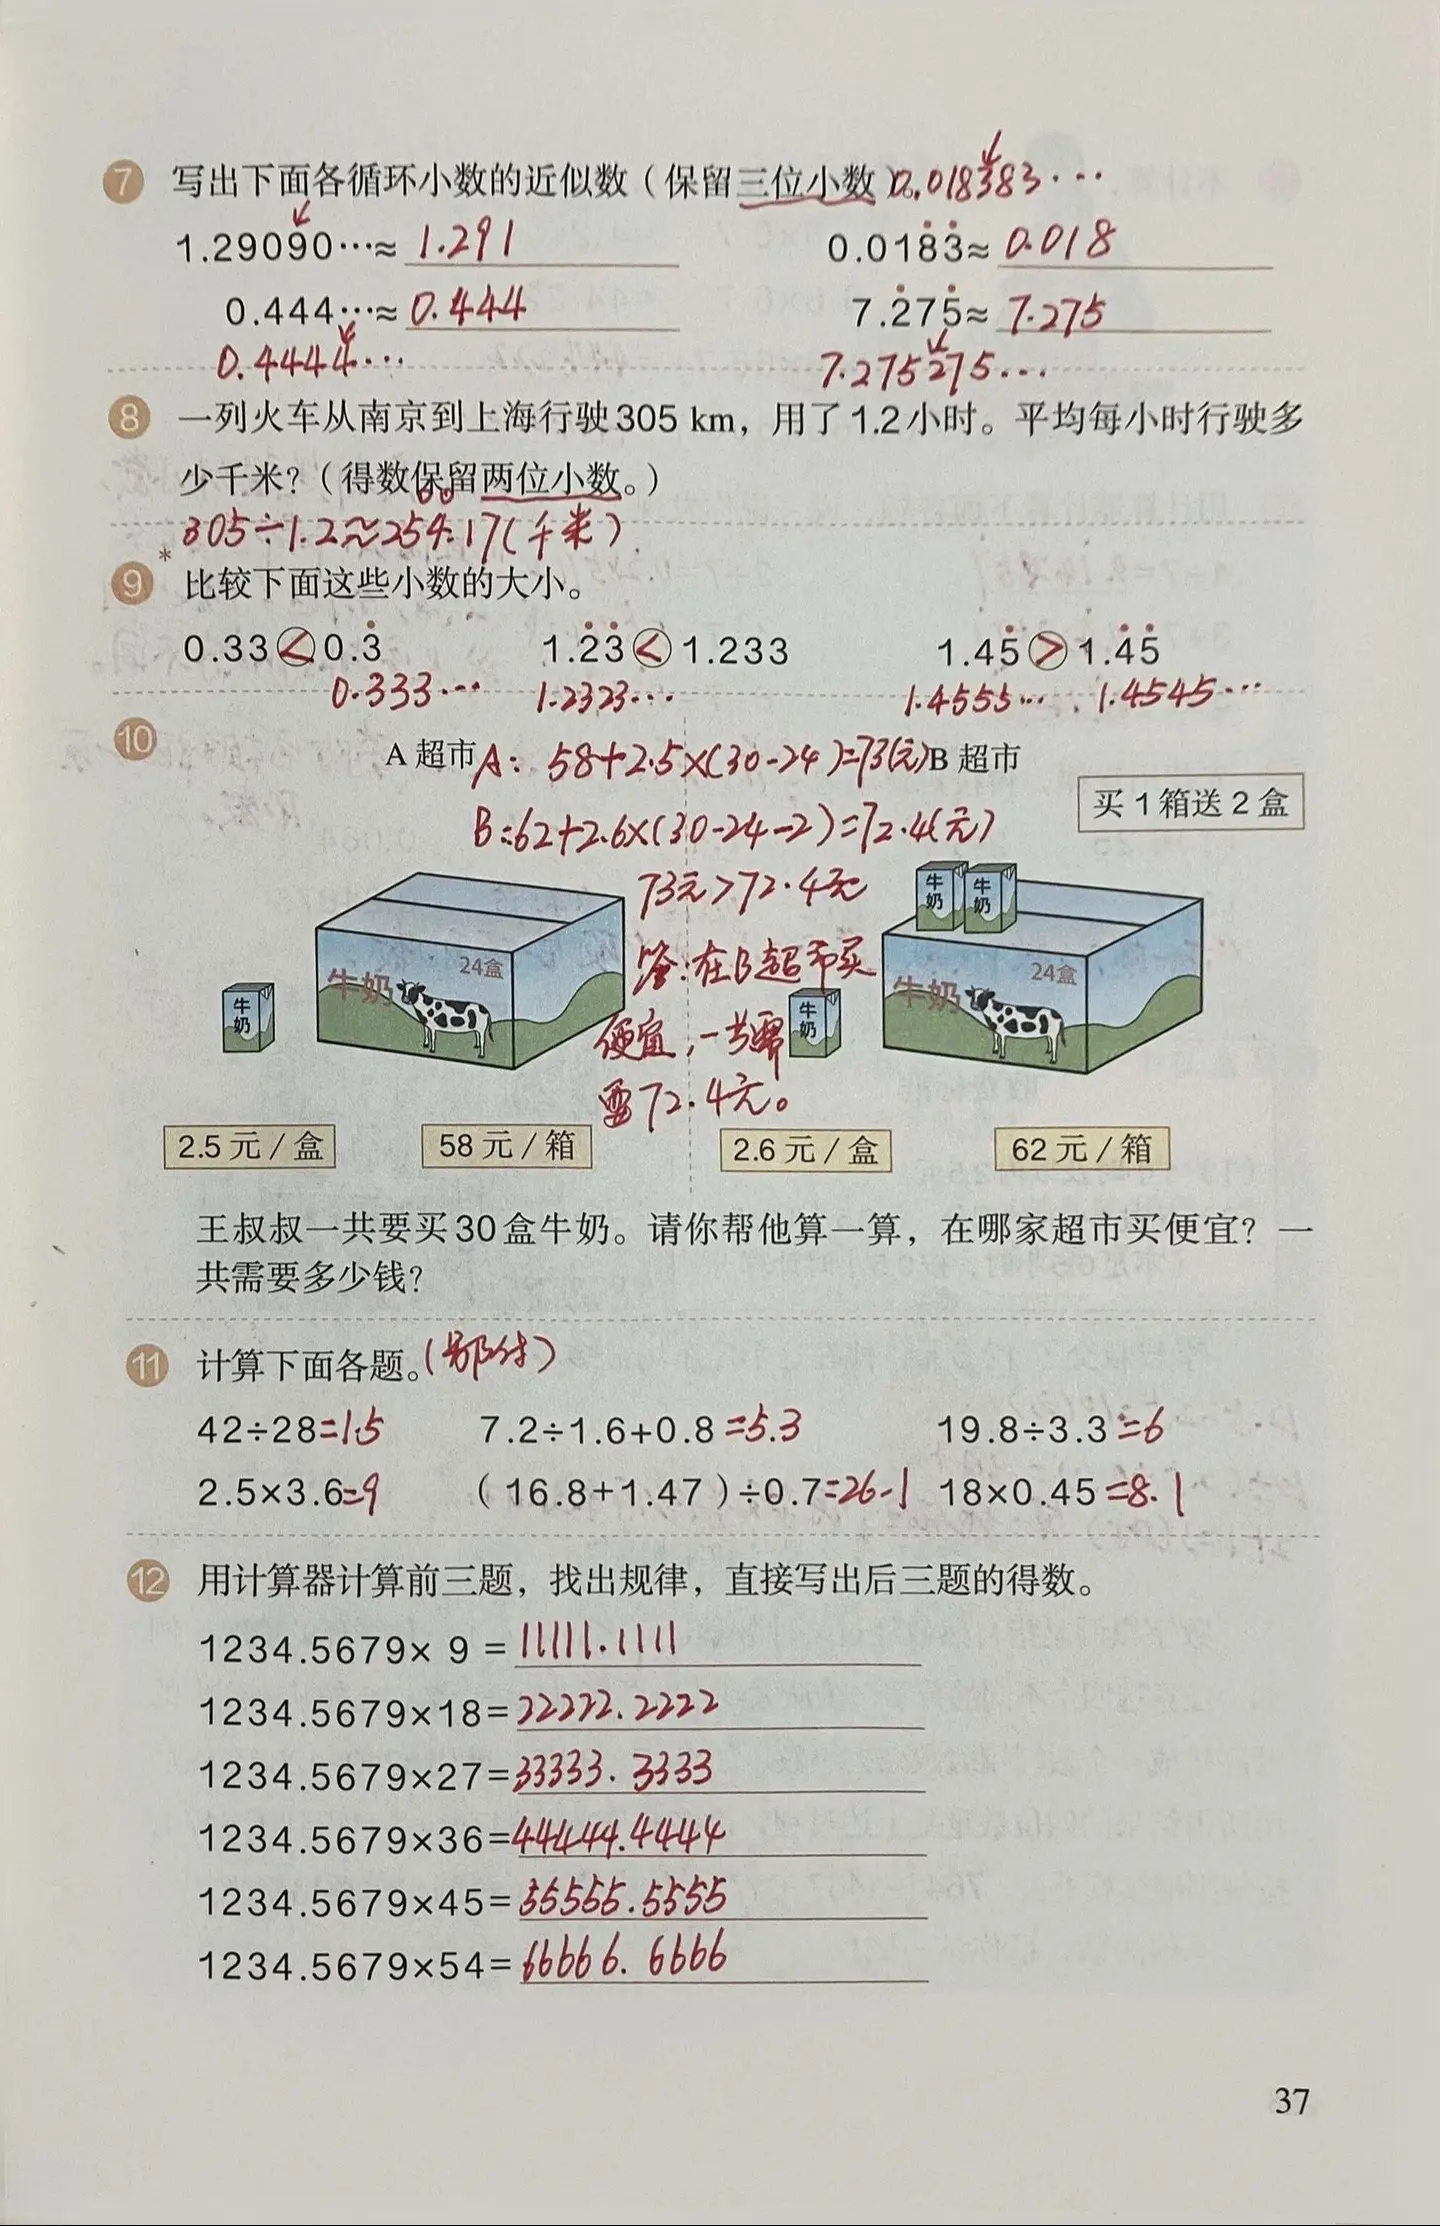 7 写出下面各循环小数的近似数（保留三位小数）。0.018383···
1.29090···≈ 1.291 0.018̇3̇≈ 0.018
0.444···≈ 0.444 7.2̇75̇≈ 7.275
0.4444··· 7.275275···
8 一列火车从南京到上海行驶305 km，用了1.2小时。平均每小时行驶多
少千米？（得数保留两位小数。）
305÷1.2≈254.17(千米)
*
9 比较下面这些小数的大小。
0.33<0.3̇ 1.2̇3̇<1.233 1.45̇>1.4̇5̇
0.333··· 1.2323··· 1.4555··· 1.4545···
10 A 超市 A: 58+2.5×(30-24)=73(元) B 超市
买 1 箱送 2 盒
B:62+2.6×(30-24-2)=72.4(元)
73元>72.4元
牛奶 牛奶
答:在B超市买
牛奶 24盒 牛奶 24盒
牛奶 牛奶
便宜,一共需
要72.4元。
2.5 元 / 盒 58 元 / 箱 2.6 元 / 盒 62 元 / 箱
王叔叔一共要买30盒牛奶。请你帮他算一算，在哪家超市买便宜？一
共需要多少钱？
11 计算下面各题。
42÷28=1.5 7.2÷1.6+0.8=5.3 19.8÷3.3=6
2.5×3.6=9 （16.8+1.47）÷0.7=26.1 18×0.45=8.1
12 用计算器计算前三题，找出规律，直接写出后三题的得数。
1234.5679× 9 =11111.1111
1234.5679×18=22222.2222
1234.5679×27=33333.3333
1234.5679×36=44444.4444
1234.5679×45=55555.5555
1234.5679×54=66666.6666
37